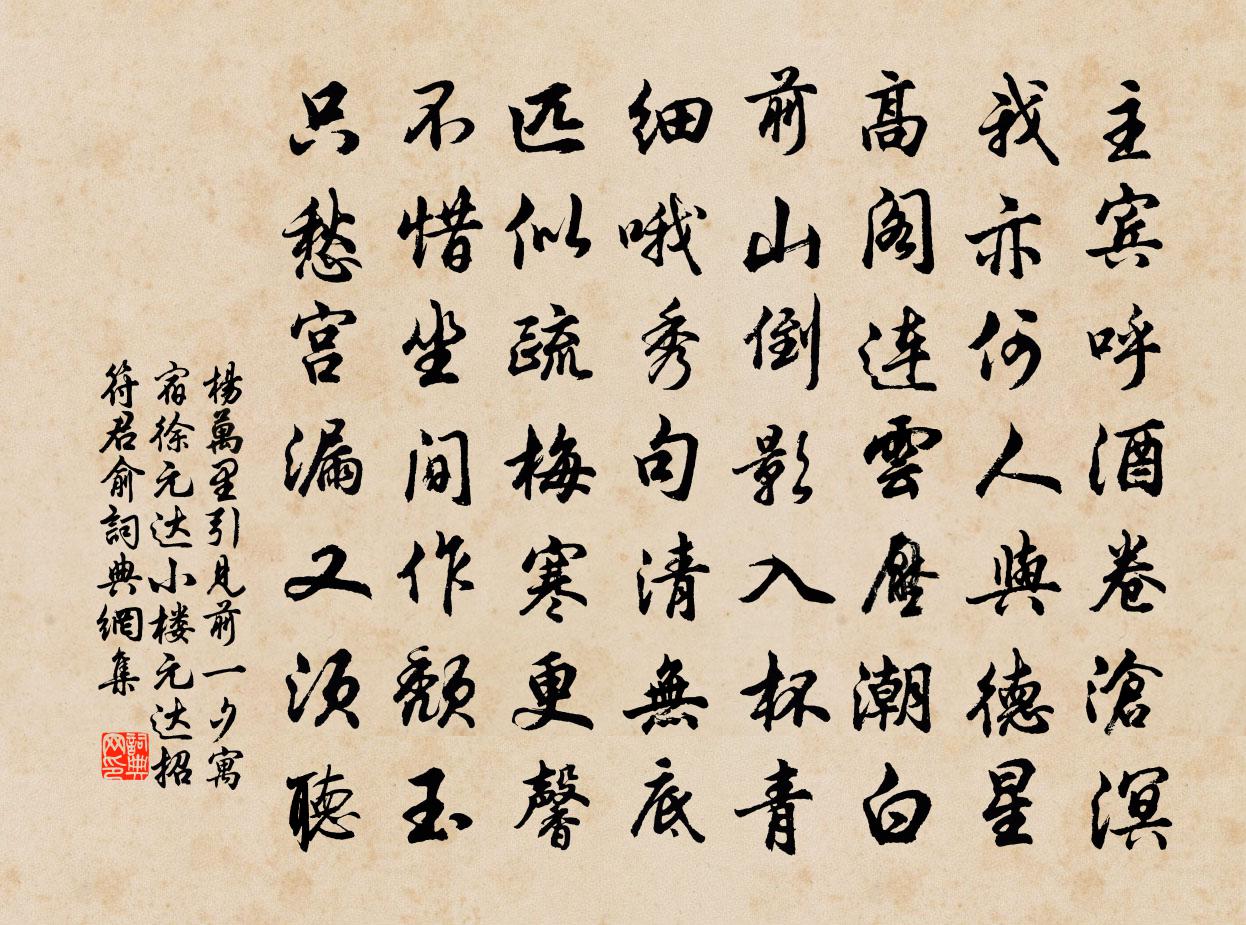 主宾呼酒卷滄溟
我亦何人與德星
高阁连雲壓潮白
前山倒影入杯青
细哦秀句清無底
匹似疏梅寒更馨
不惜坐间作颓玉
只愁宫漏又须聽
楊萬里引見前一夕寓
宿徐元达小楼元达招
符君俞詞典網集
詞典网印